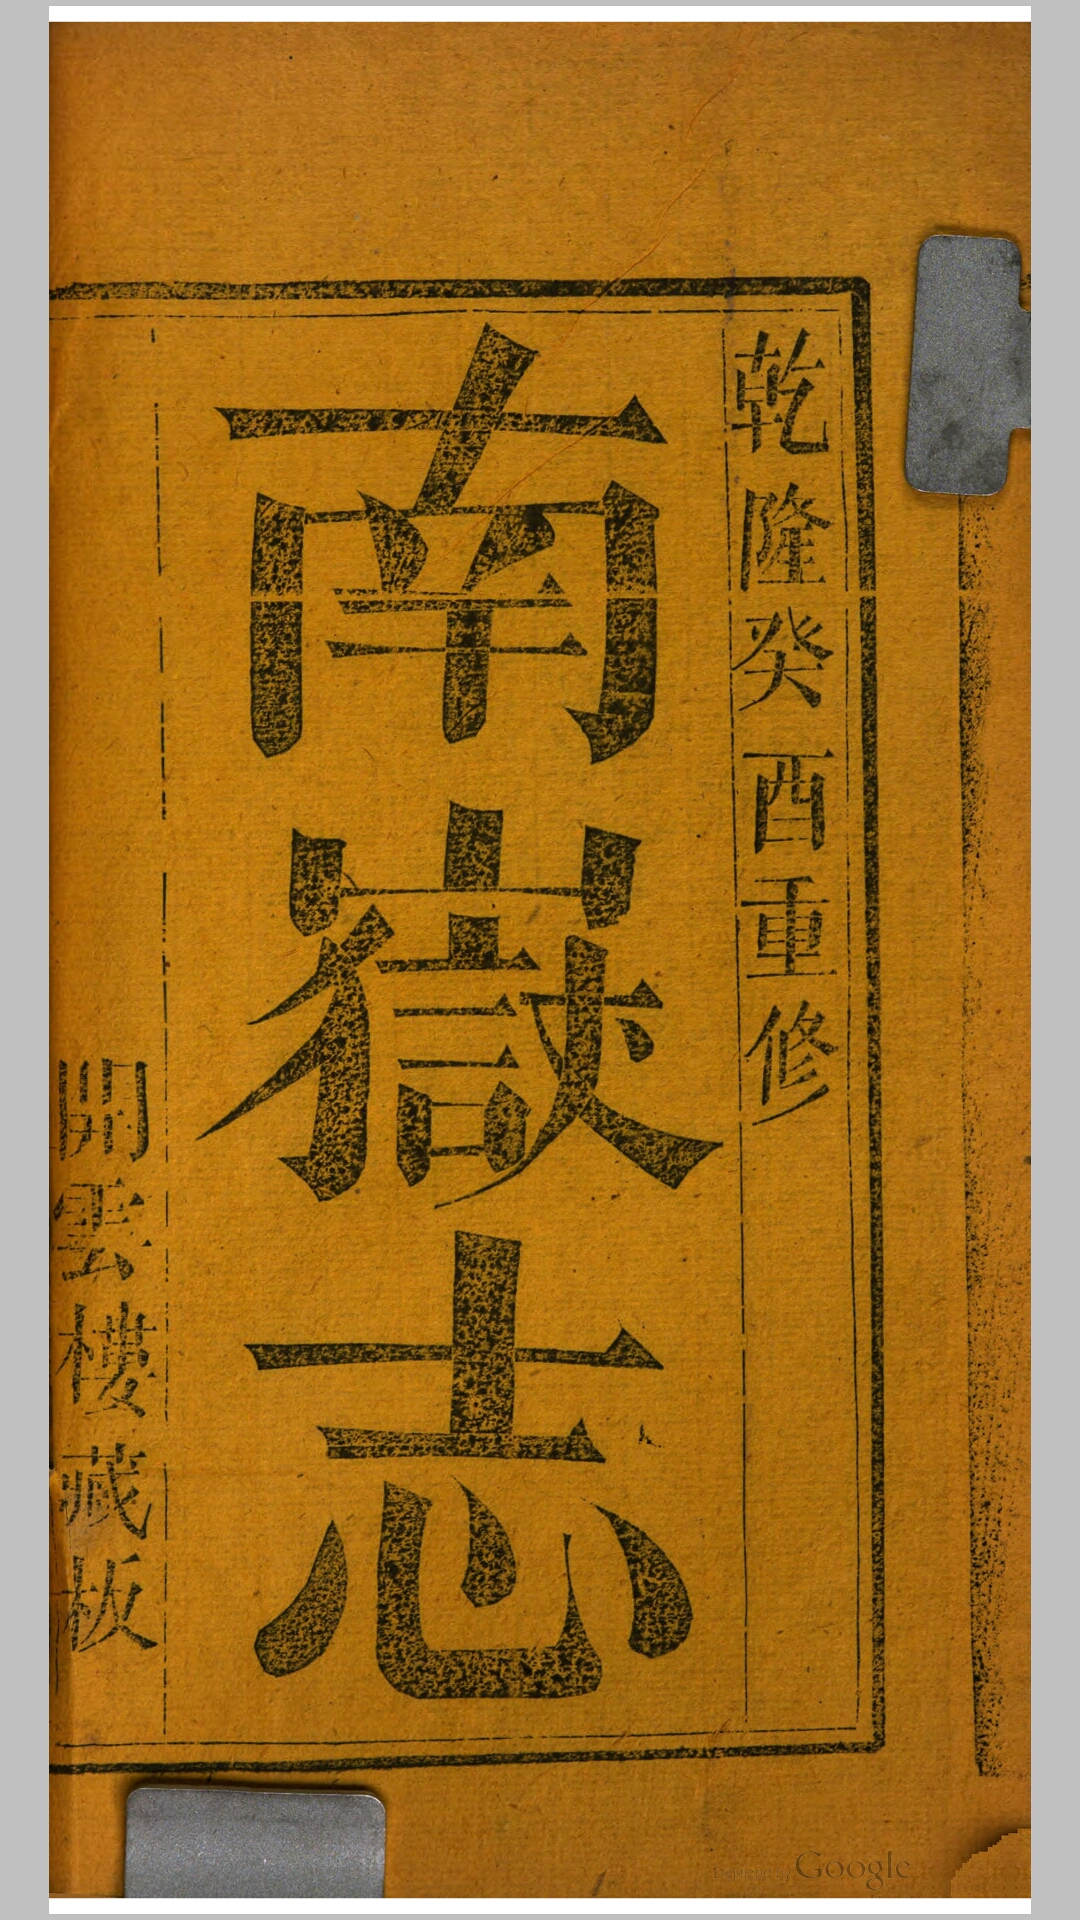 乾隆癸酉重修
南嶽志
開雲樓藏板
Digitized by Google